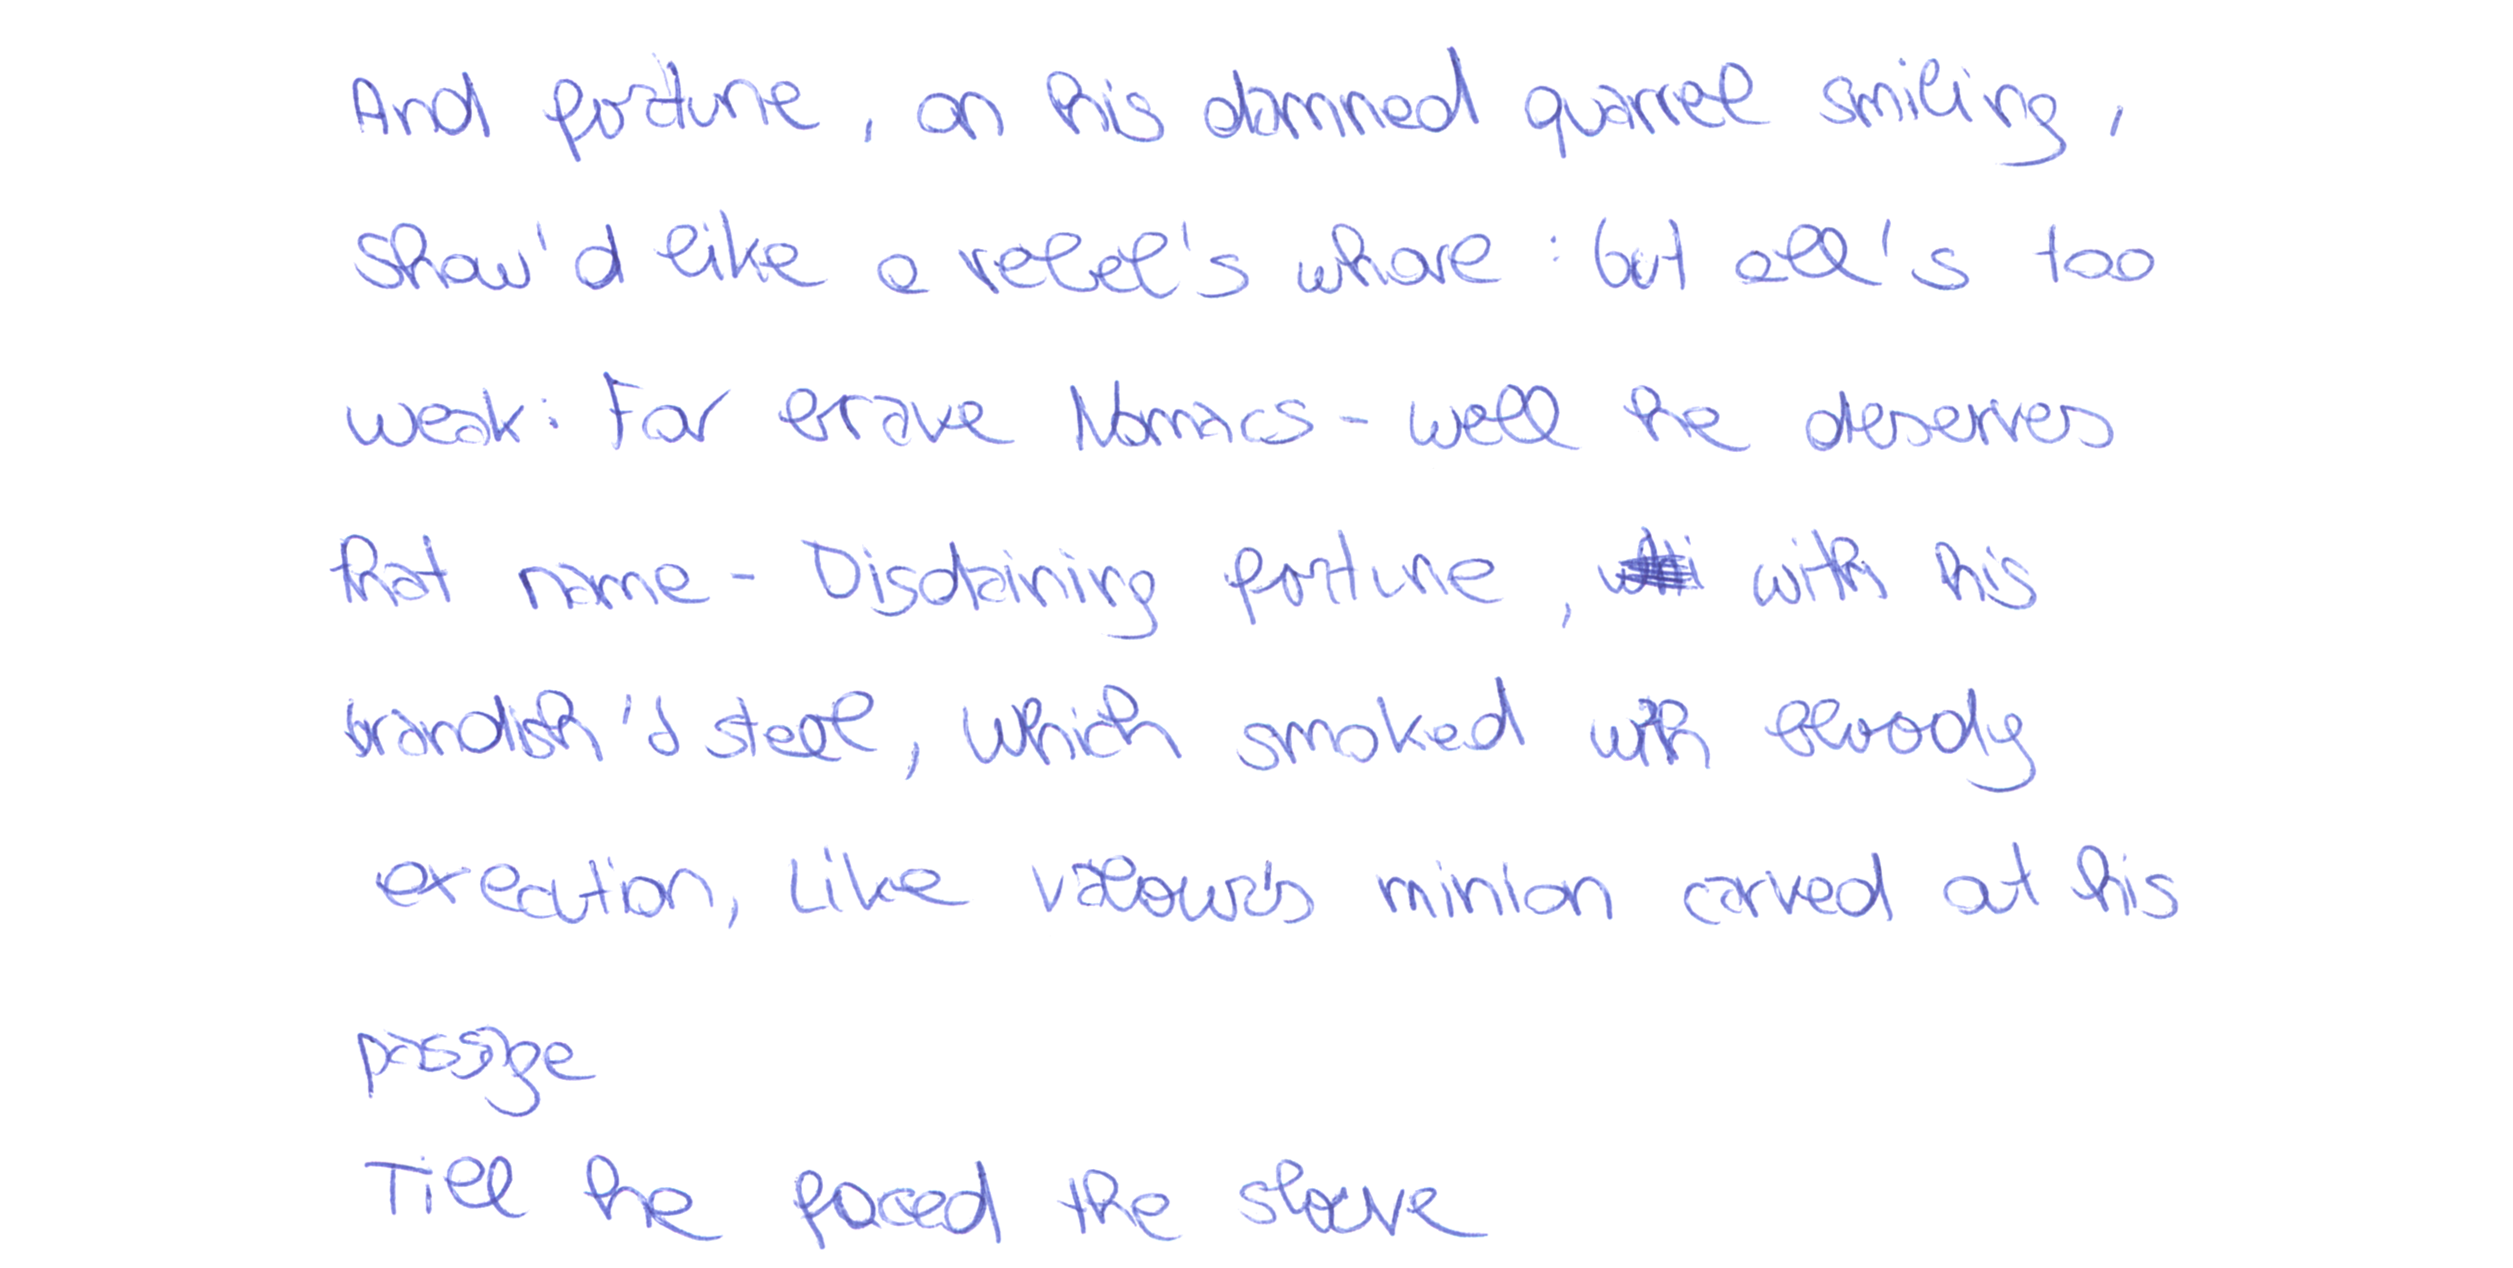 And fortune, on his damned quarrel smiling,
Show'd like a rebel's whore: but all's too
weak: For brave Nomacs - well he deserves
that name - Disdaining fortune, with his
brandish'd steel, which smoked with bloody
execution, Like valour's minion carved out his
passage
Till he faced the slave